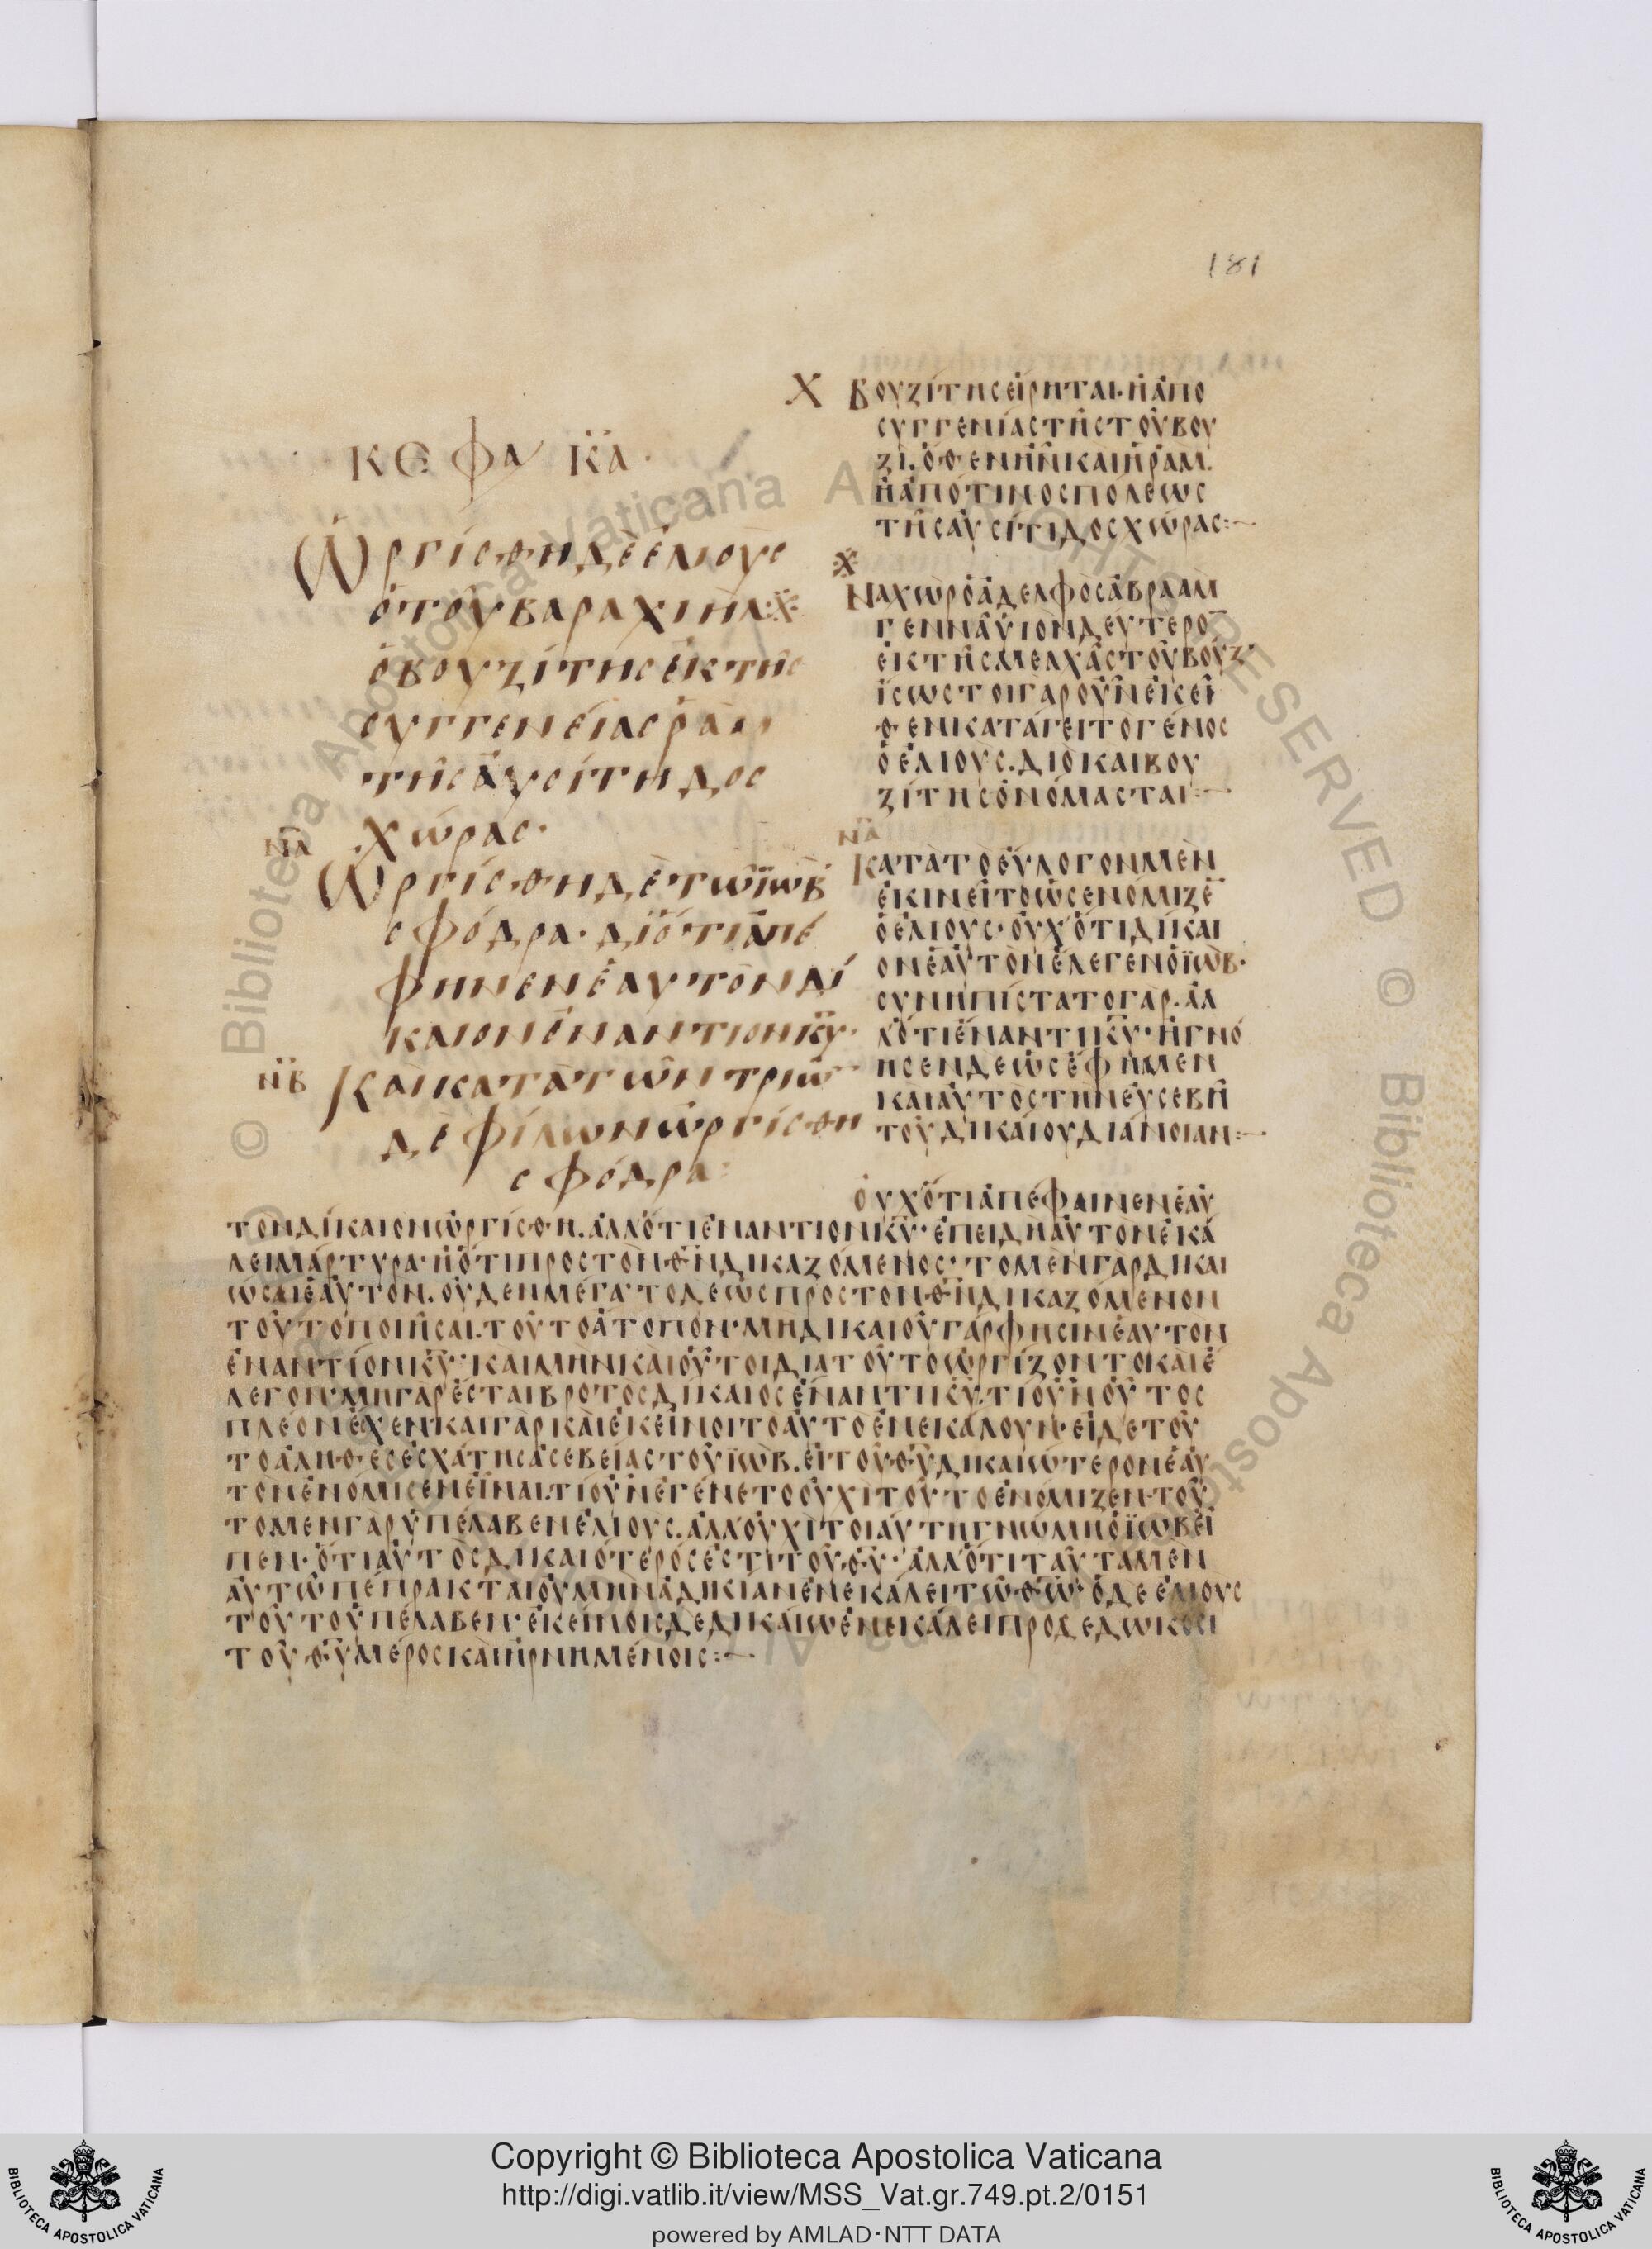 181
ΚΕΦΑ ΚΑ·
Ὠργίσθη δὲ ἐλιοὺς
ὁ τοῦ βαραχιὴλ·
ὁ βουζίτης ἐκ τῆς
συγγενείας ῥὰμ
τῆς ἀυσίτηδος
χώρας·
να
Ὠργίσθη δὲ τῶ ϊὼβ
σφόδρα· δϊότι ἀπέ
φηνεν ἑαυτὸν δί
καιον ἐναντιον κ̅υ̅·
νβ
Καὶ κατὰ τῶν τριῶ̅
δὲ φίλων ὠργίσθη
σφόδρα·
Χ
Βουζίτης εἴρηται· ἢ ἀπο
συγγενίας τῆς τοῦ βου
ζί. ὅθεν ἦν καὶ ἡ ῥάμ.
ἢ ἀπό τινος πόλεως
τῆς αὐσίτιδος χώρας:~
Ναχὼρ ὁ ἀδελφὸς ἀβραὰμ
γεννᾶ ὑιὸν δεύτερο̅
ἐκ τῆς μελχᾶς τοῦ βούζ·
ἴσως τοιγαροῦν ἐκεῖ
θεν κατάγει τὸ γένος
ὁ ἐλιούς. διὸ καὶ βου
ζίτης ὀνόμασται:~
να
Κατὰ τὸ εὔλογον μὲν
ἐκινεῖτο ὡς ἐνόμιζε̅
ὁ ἐλιούς· οὐχ' ὅτι δίκαι
ον ἑαυτὸν ἔλεγεν ὁ ϊώβ·
συνηπίστατο γάρ. ἀλ
λ' ὅτι ἔναντι κ̅υ̅· ἠγνό
ησεν δὲ ὡς ἔφημεν
καὶ αὐτὸς τὴν εὐσεβῆ
τοῦ δικαίου διάνοιαν:~
Οὐχ' ὅτι ἀπέφαινεν ἑαυ
τὸν δίκαιον ὠργίσθη. ἀλλ' ὅτι ἐναντίον κ̅υ̅· ἐπειδὴ αὐτὸν ἐκά
λει μάρτυρα· ἢ ὅτι πρὸς τὸν θ̅ν̅ δικαζόμενος· τὸ μὲν γὰρ δικαι
ῶσαι ἑαυτον. οὐδεν μέγα· τὸ δὲ ὡς πρὸς τὸν θ̅ν̅ δικαζόμενον
τοῦτο ποιῆσαι. τοῦτο ἄτοπον· μὴ δικαιοῦ γάρ φησιν ἑαυτὸν
ἐναντίον κ̅υ̅· καὶ μὴν καὶ οὗτοι διὰ τοῦτο ὠργίζοντο καὶ ἔ
λεγον· μὴ γὰρ ἔσται βροτὸς δίκαιος ἔναντι κ̅υ̅. τί οὖν οὗτος
πλέον ἔχεν καὶ γὰρ καὶ ἐκεῖνοι τὸ αὐτὸ ἐνεκάλουν· εἰ δὲ τοῦ
το ἀληθὲς ἐσχάτης ἀσεβείας τοῦ ϊώβ. εἰ τοῦ θ̅υ̅ δικαιώτερον ἑαυ
τὸν ἐνόμισεν εἶναι. τί οὖν ἐγένετο οὐχὶ τοῦτο ἐνόμιζεν· τοῦ
το μὲν γὰρ ὑπέλαβεν ἐλιούς. ἀλλ' οὐχὶ τοιαύτη γνώμη ὁ ϊὼβ εἶ
πεν· ὅτι αὐτὸς δικαιότερός ἐστι τοῦ θ̅υ̅· ἀλλ' ὅτι ταῦτα μὲν
αὐτῶ πέπρακται οὐ μὴν ἀδικίαν ἐνεκάλει τῶ θ̅ω̅· ὁ δὲ ἐλιοὺς
τοῦτ' ὑπέλαβεν· ἐκείνοις δὲ δικαίω ἐνεκάλει προδεδωκόσι
τοῦ θ̅υ̅ μέρος καὶ ἠρνημένοις:~
Copyright © Biblioteca Apostolica Vaticana
http://digi.vatlib.it/view/MSS_Vat.gr.749.pt.2/0151
powered by AMLAD·NTT DATA
BIBLIOTECA APOSTOLICA VATICANA
BIBLIOTECA APOSTOLICA VATICANA